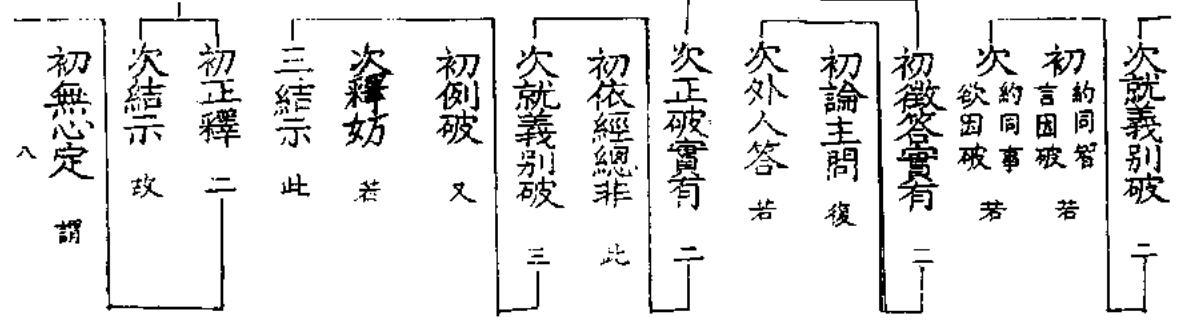 次就義別破 二
初約同智言因破 若
次約同事欲因破 若
初徵答實有 二
初論主問 復
次外人答 若
次正破實有 二
初依經總非 此
次就義別破 三
初例破 又
次釋妨 若
三結示 此
初正釋 二
次結示 故
初無心定 謂
八